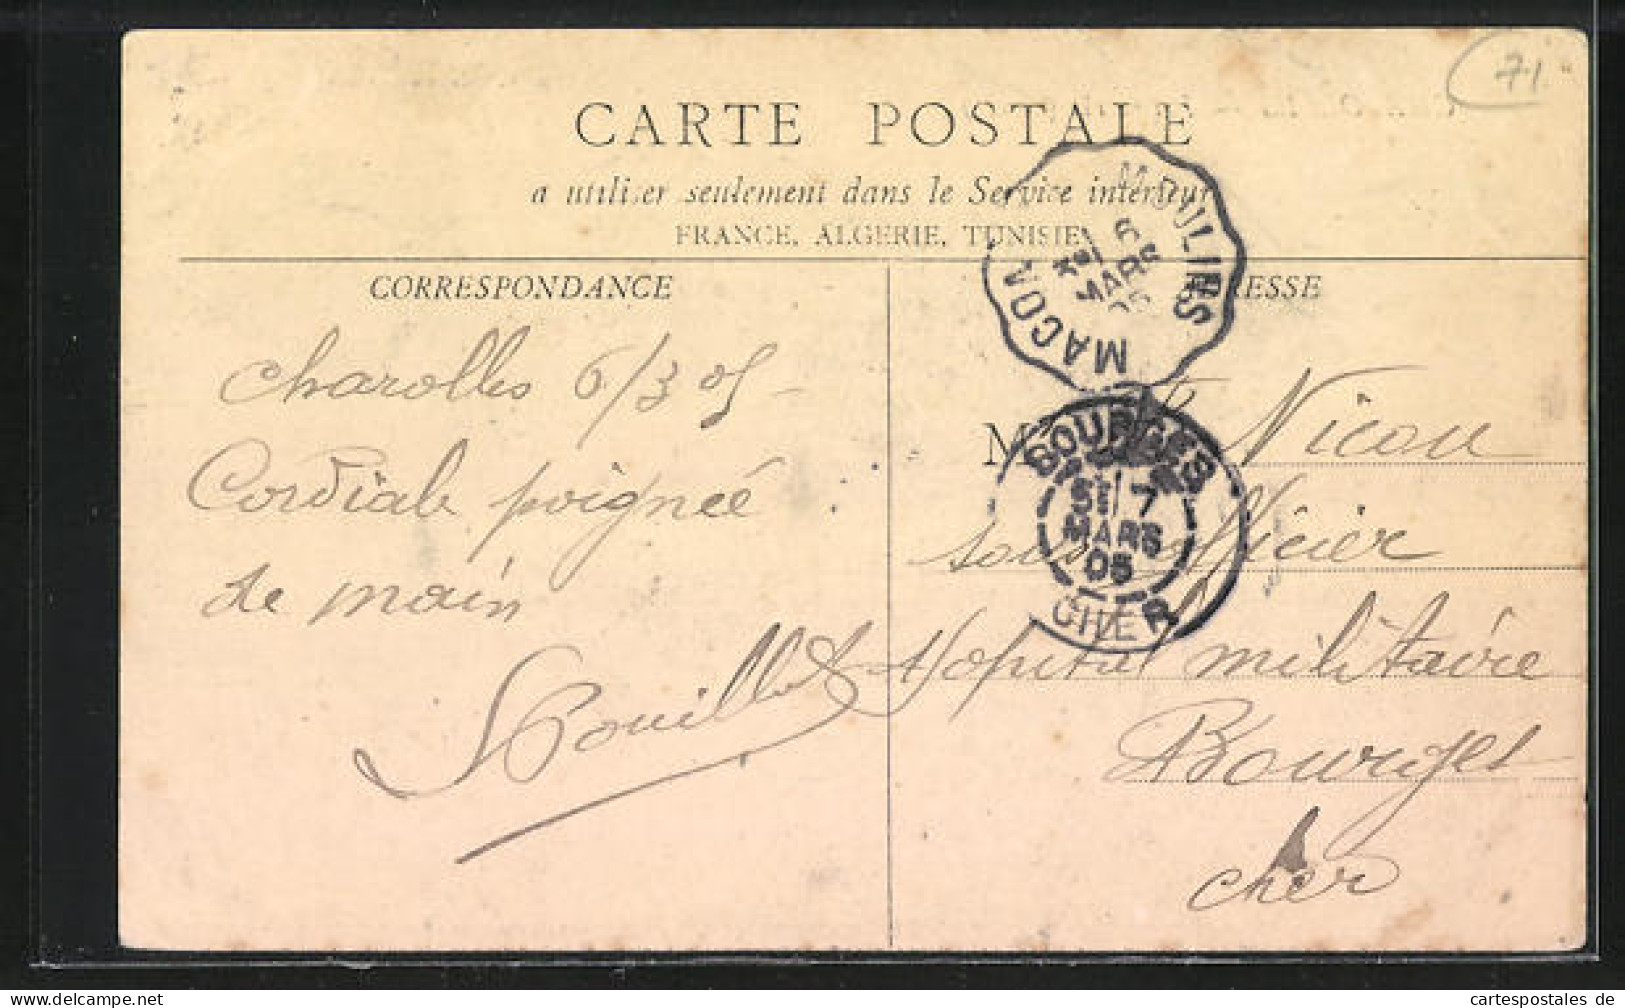 71
CARTE POSTALE
a utiliser seulement dans le Service intérieur
FRANCE, ALGERIE, TUNISIE
CORRESPONDANCE
RESSE
MACON
MOULINS
6
MARS
05
Charolles 6/3 05
Cordiale poignée
de main
BOURGES
5E/ 7
MARS
05
CHER
M Nicou
sous officier
Hopital militaire
Bourges
cher
www.cartespostales.de